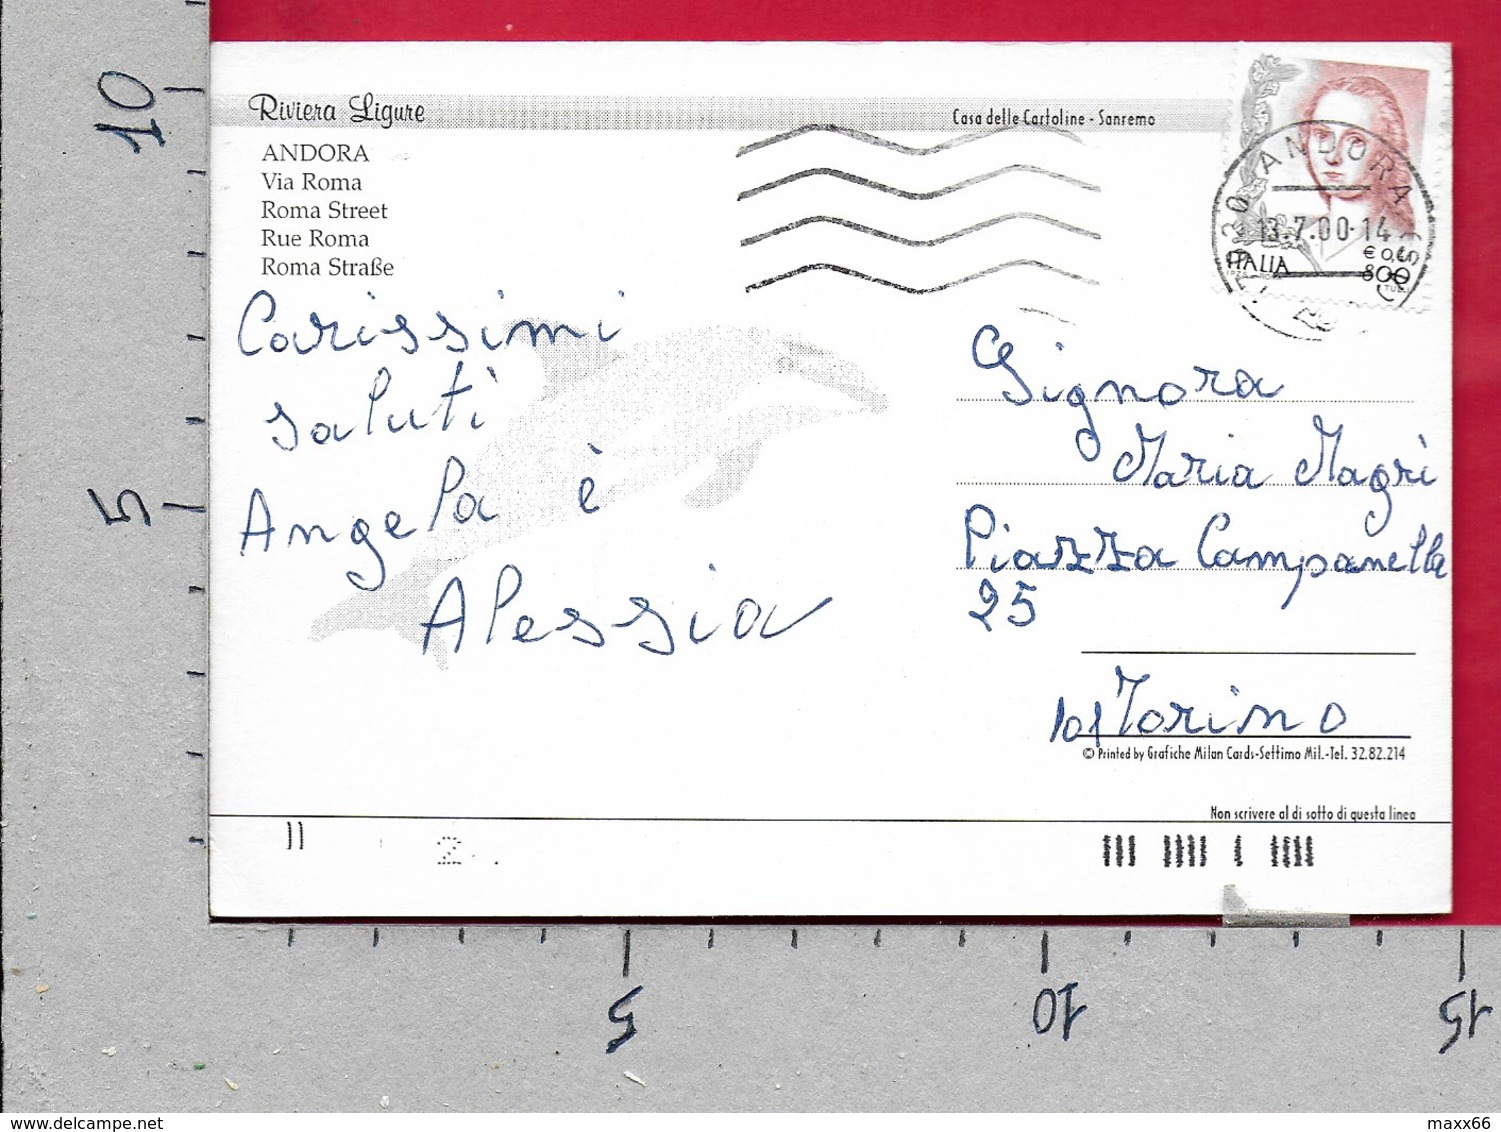 Riviera Ligure
Casa delle Cartoline - Sanremo
ANDORA
Via Roma
Roma Street
Rue Roma
Roma Straße
ANDORA
13.7.00-14
ITALIA
€ 0,41
800
Carissimi
saluti
Angela è
Alessia
Signora
Maria Magrì
Piazza Campanella
25
101 Torino
© Printed by Grafiche Milan Cards-Settimo Mil.-Tel. 32.82.214
Non scrivere al di sotto di questa linea
2
10
5
5
10
15
delcampe.net
maxx66